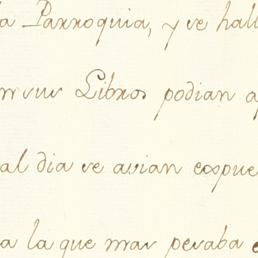 a Parroquia, y se hall
en sus Libros podian a
al dia se avian espue
a la que mas pesaba e